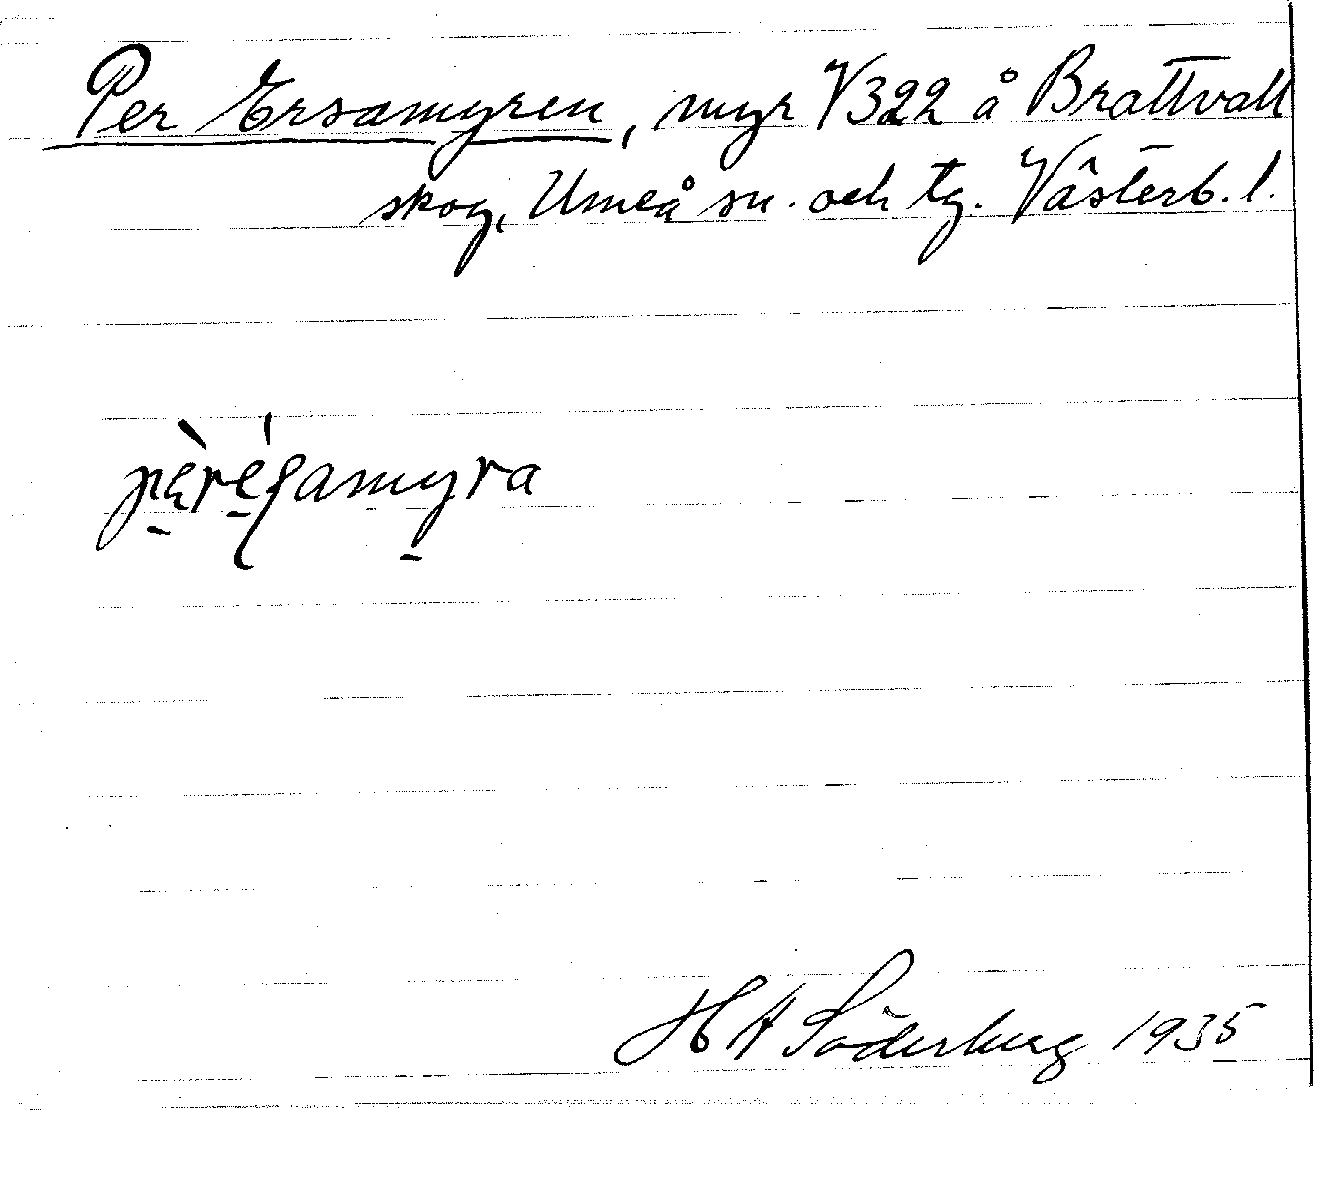 Per Ersamyren, myr V322 å Brattvall
skog, Umeå sn. och tg. Västerb. l.
pèréʃamyra
H A Söderberg 1935